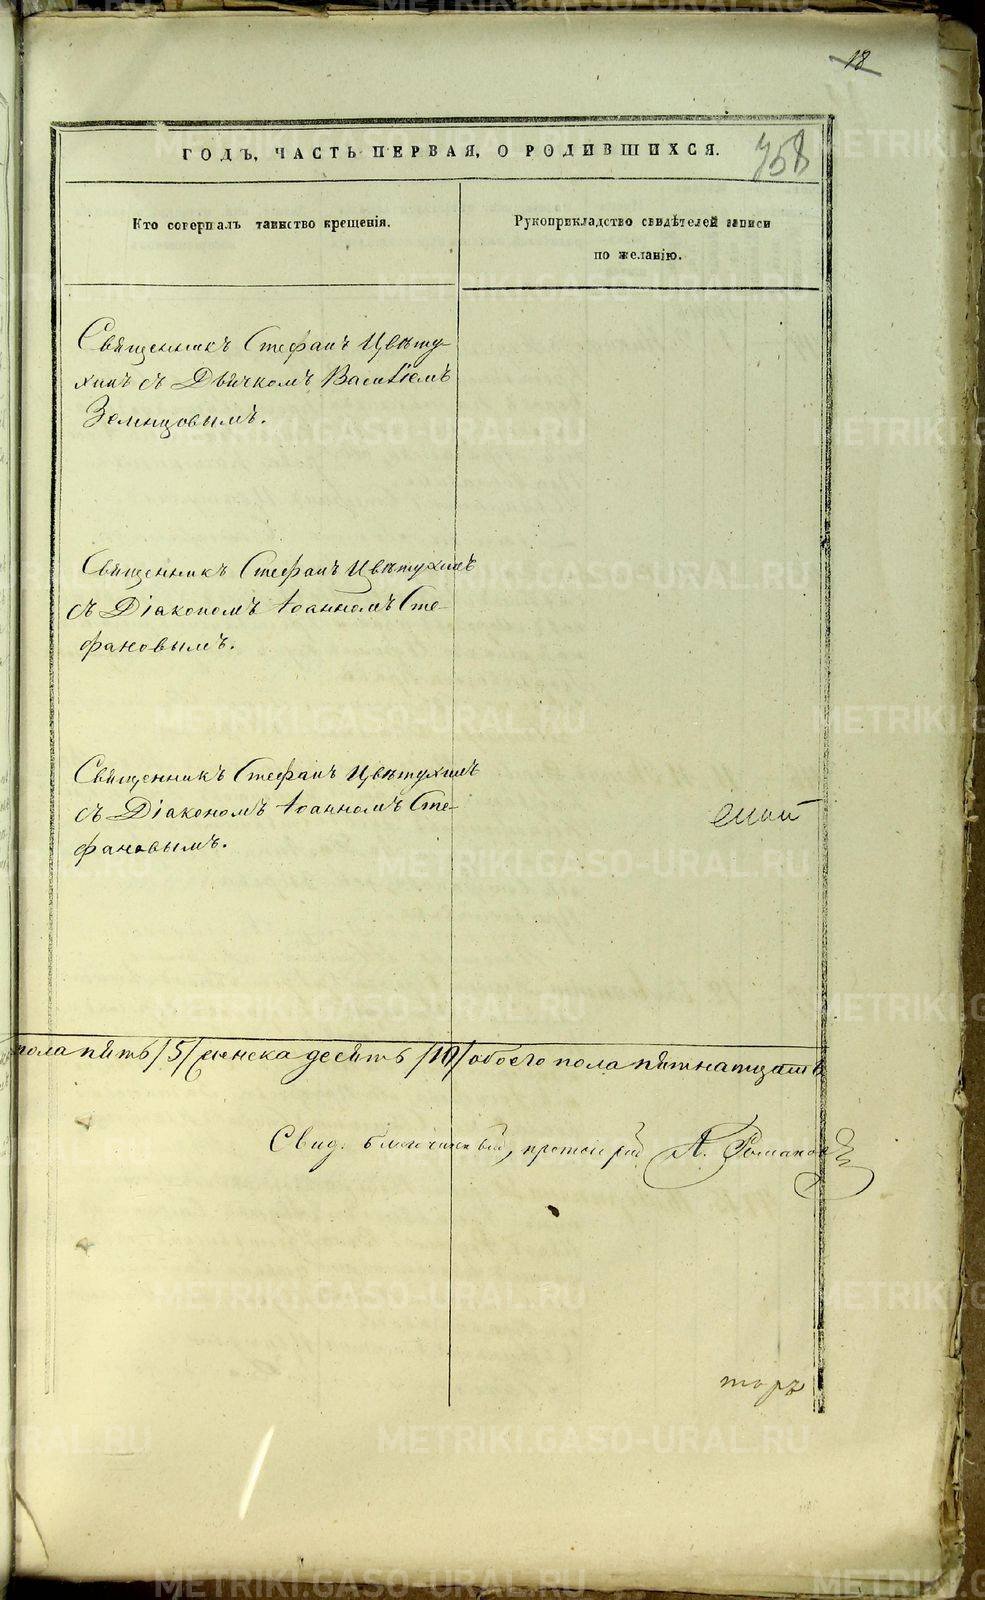 18
758
ГОДЪ, ЧАСТЬ ПЕРВАЯ, О РОДИВШИХСЯ.
Кто совершалъ таинство крещенія.
Рукоприкладство свидѣтелей записи
по желанію.
Священникъ Стефанъ Цвѣту-
хинъ съ Дьячкомъ Василіемъ
Земнцовымъ.
Священникъ Стефанъ Цвѣтухинъ
съ Діакономъ Іоанномъ Сте-
фановымъ.
Священникъ Стефанъ Цвѣтухинъ
съ Діакономъ Іоанномъ Сте-
фановымъ.
пола пять /5/ женска десять /10/ обоего пола пятнатцать
Свид. благочинный, протоіерей А. Романовъ
METRIKI.GASO-URAL.RU